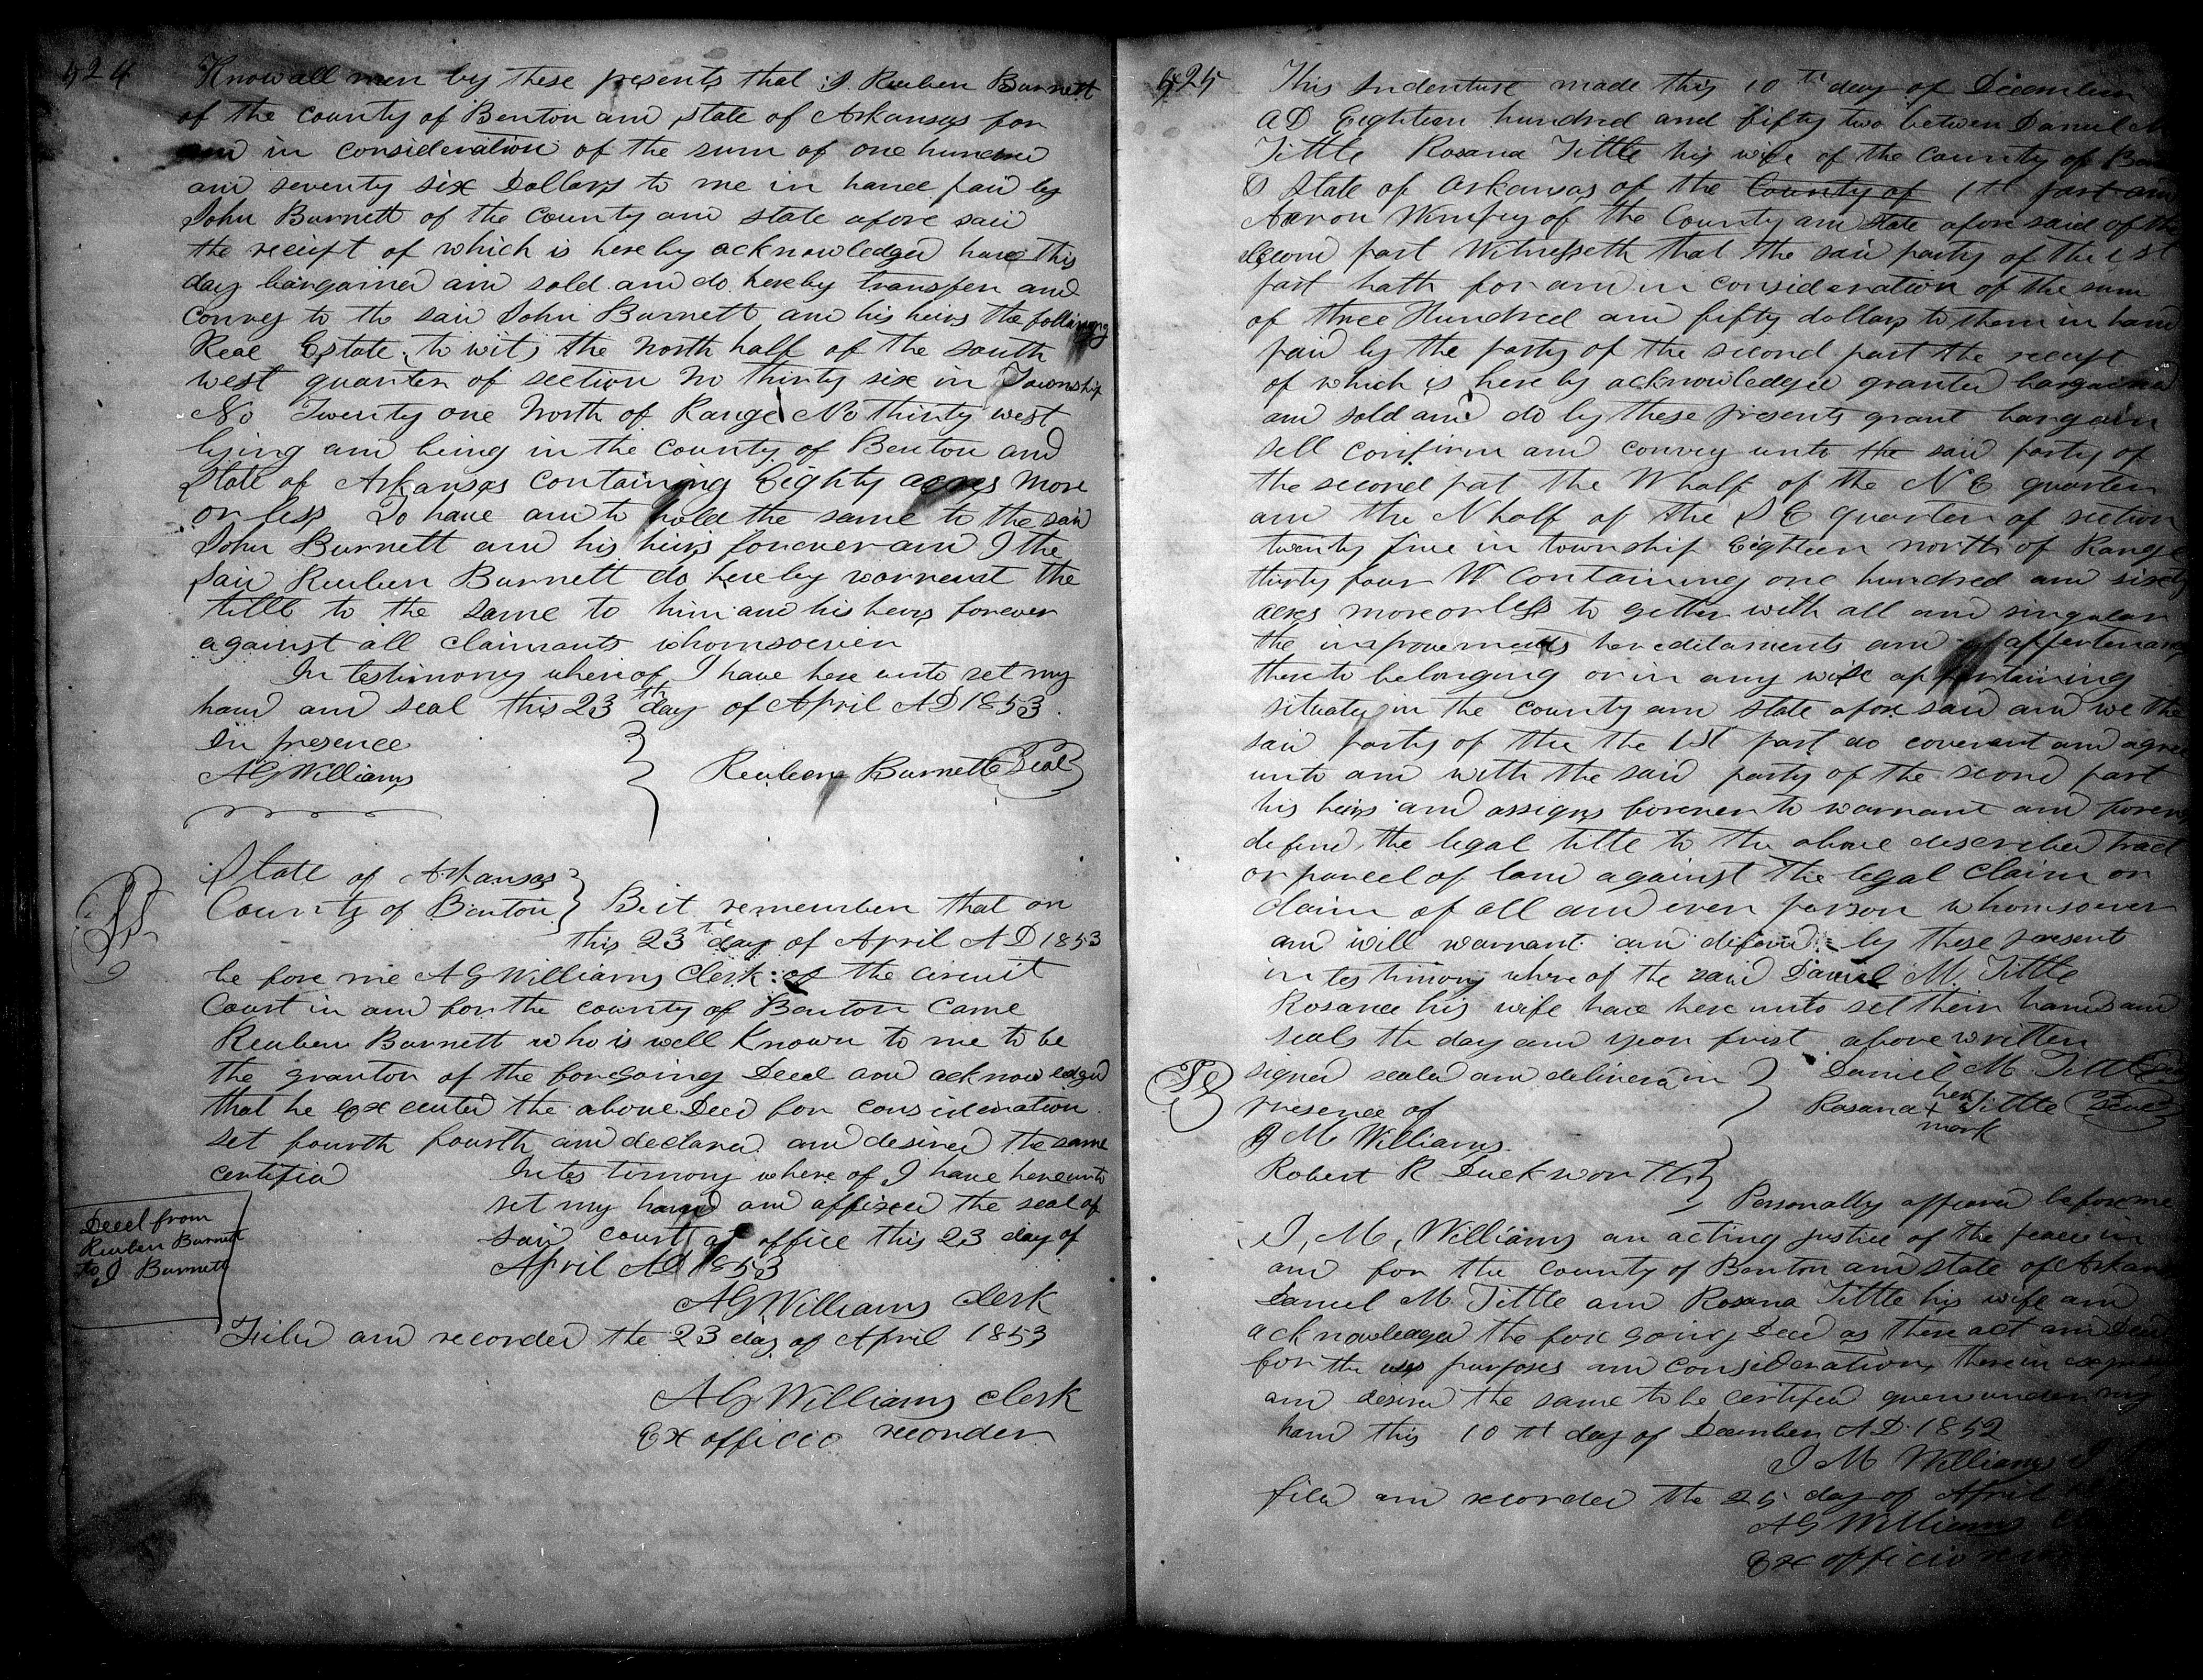 524
Know all men by these presents that I Reuben Burnett
of the County of Benton and State of Arkansas for
and in consideration of the sum of one hundred
and seventy six Dollars to me in hand paid by
John Burnett of the County and state afore said
the reciept of which is hereby acknowledged have this
day bargained and sold and do hereby transfer and
convey to the said John Burnett and his heirs the following
Real Estate, to wit, the North half of the south
west quarter of section No thirty six in Township
No Twenty one North of Range No thirty west
lying and being in the County of Benton and
State of Arkansas containing Eighty acres more
or less To have and to hold the same to the said
John Burnett and his heirs forever and I the
said Reuben Burnett do hereby warrent the
title to the same to him and his heirs forever
against all claimants whomsoever
In testimony whereof I have here unto set my
hand and seal this 23th day of April AD 1853
In presence
AG Williams
Reuben Burnett Seal
State of Arkansas
County of Benton Be it remember that on
this 23th day of April AD 1853
be fore me AG Williams Clerk of the circuit
Court in and for the county of Benton came
Reuben Burnett who is well Known to me to be
the grantor of the foregoing Deed and acknowledged
that he Executed the above Deed for consideration
set fourth fourth and declared and desired the same
certified In tes timony where of I have hereunto
set my hand and affixed the seal of
said court at office this 23 day of
April AD 1853
AG Williams Clerk
Deed from
Reuben Burnett
to J Burnett
Filed and recorded the 23 day of April 1853
AG Williams Clerk
Ex officio recorder
525
This Indenture made this 10th day of December
AD Eighteen hundred and fifty two between Daniel M
Tittle Rosana Tittle his wife of the County of
& State of Arkansas of the County of 1st part and
Aaron Wimpey of the County and State afore said of the
second part Witnesseth that the said party of the 1st
part hath for and in consideration of the sum
of three Hundred and fifty dollars to them in hand
paid by the party of the second part the receipt
of which is here by acknowledged granted bargained
and sold and do by these presents grant bargain
sell confirm and convey unto the said party of
the second pat the W half of the N E quarter
and the N half of the S E quarter of section
twenty five in township Eighteen north of Range
thirty four W containing one hundred and sixty
acres more or less to gether with all and singular
the improvements hereditaments and appertenances
thereto belonging or in any wise appertaining
situate in the County and State afore said and we the
said party of the the 1st part do covenant and agree
unto and with the said party of the second part
his heirs and assigns forever to warrant and forever
defend the legal title to the above described tract
or parcel of land against the legal claim or
claim of all and ever person whomsoever
and will warrant and defend by these present
in tes timony where of the said Daniel M. Tittle
Rosanna his wife have here unto set their hands and
seals the day and year first above written
signed sealed and delivered in
presence of
J M Williams
Robert R Duckworth
Daniel M Tittle
Rosana her + mark Tittle Seal
Personally appeared before me
J, M, Williams an acting justice of the peace in
and for the County of Benton and State of Arkansas
Daniel M Tittle and Rosana Tittle his wife and
acknowledged the fore going Deed as there act and Deed
for the uses purposes and consideration therein
and desired the same to be certified given under my
hand this 10th day of December AD 1852
J M Williams J
filed and recorded the 25 day of April
AG Williams
Ex officio